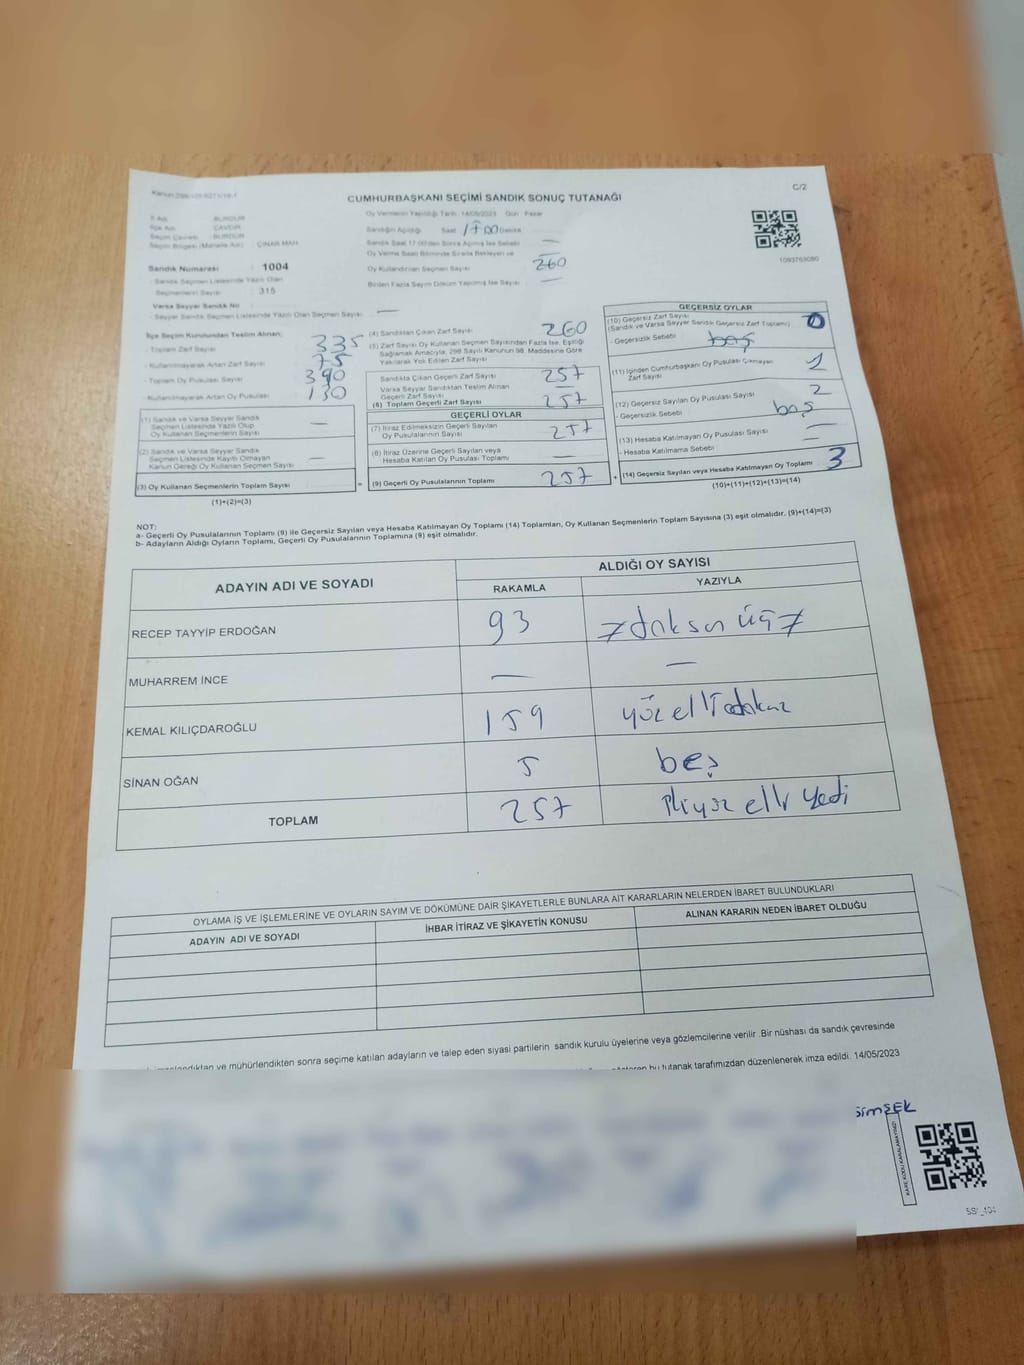 C/2
CUMHURBAŞKANI SEÇİMİ SANDIK SONUÇ TUTANAĞI
1093763080
İl Adı : BURDUR
İlçe Adı : ÇAVDIR
Seçim Çevresi : BURDUR
Seçim Bölgesi (Mahalle Adı) : ÇINAR MAH.
Sandık Numarası : 1004
- Sandık Seçmen Listesinde Yazılı Olan
Seçmenlerin Sayısı : 315
Varsa Seyyar Sandık No :
- Seyyar Sandık Seçmen Listesinde Yazılı Olan Seçmen Sayısı : —
Oy Vermenin Yapıldığı Tarih : 14/05/2023 Gün : Pazar
Sandığın Açıldığı Saat 17:00 Dakika
Sandık Saat 17:00'den Sonra Açılmış İse Sebebi —
Oy Verme Saati Bitiminde Sırada Bekleyen ve —
Oy Kullandırılan Seçmen Sayısı 260
Birden Fazla Sayım Döküm Yapılmış İse Sayısı —
İlçe Seçim Kurulundan Teslim Alınan;
- Toplam Zarf Sayısı 335
- Kullanılmayarak Artan Zarf Sayısı 75
- Toplam Oy Pusulası Sayısı 390
- Kullanılmayarak Artan Oy Pusulası 130
(1) Sandık ve Varsa Seyyar Sandık
Seçmen Listesinde Yazılı Olup
Oy Kullanan Seçmenlerin Sayısı —
(2) Sandık ve Varsa Seyyar Sandık
Seçmen Listesinde Kaydı Olmayan
Kanun Gereği Oy Kullanan Seçmen Sayısı —
(3) Oy Kullanan Seçmenlerin Toplam Sayısı
(1)+(2)=(3)
=
(4) Sandıktan Çıkan Zarf Sayısı 260
(5) Zarf Sayısı Oy Kullanan Seçmen Sayısından Fazla İse, Eşitliği
Sağlamak Amacıyla, 298 Sayılı Kanunun 98. Maddesine Göre
Yakılarak Yok Edilen Zarf Sayısı
Sandıkta Çıkan Geçerli Zarf Sayısı 257
Varsa Seyyar Sandıktan Teslim Alınan
Geçerli Zarf Sayısı —
(6) Toplam Geçerli Zarf Sayısı 257
GEÇERLİ OYLAR
(7) İtiraz Edilmeksizin Geçerli Sayılan
Oy Pusulalarının Sayısı 257
(8) İtiraz Üzerine Geçerli Sayılan veya
Hesaba Katılan Oy Pusulası Toplamı —
(9) Geçerli Oy Pusulalarının Toplamı 257
+
GEÇERSİZ OYLAR
(10) Geçersiz Zarf Sayısı
(Sandık ve Varsa Seyyar Sandık Geçersiz Zarf Toplamı) 0
- Geçersizlik Sebebi : boş
(11) İçinden Cumhurbaşkanı Oy Pusulası Çıkmayan
Zarf Sayısı 1
(12) Geçersiz Sayılan Oy Pusulası Sayısı 2
- Geçersizlik Sebebi : boş
(13) Hesaba Katılmayan Oy Pusulası Sayısı —
- Hesaba Katılmama Sebebi : —
(14) Geçersiz Sayılan veya Hesaba Katılmayan Oy Toplamı 3
(10)+(11)+(12)+(13)=(14)
NOT:
a- Geçerli Oy Pusulalarının Toplamı (9) ile Geçersiz Sayılan veya Hesaba Katılmayan Oy Toplamı (14) Toplamları, Oy Kullanan Seçmenlerin Toplam Sayısına (3) eşit olmalıdır. (9)+(14)=(3)
b- Adayların Aldığı Oyların Toplamı, Geçerli Oy Pusulalarının Toplamına (9) eşit olmalıdır.
ADAYIN ADI VE SOYADI ALDIĞI OY SAYISI
RAKAMLA YAZIYLA
RECEP TAYYİP ERDOĞAN 93 doksan üç
MUHARREM İNCE — —
KEMAL KILIÇDAROĞLU 159 yüz elli dokuz
SİNAN OĞAN 5 beş
TOPLAM 257 ikiyüz elli yedi
OYLAMA İŞ VE İŞLEMLERİNE VE OYLARIN SAYIM VE DÖKÜMÜNE DAİR ŞİKAYETLERLE BUNLARA AİT KARARLARIN NELERDEN İBARET BULUNDUKLARI
ADAYIN ADI VE SOYADI İHBAR İTİRAZ VE ŞİKAYETİN KONUSU ALINAN KARARIN NEDEN İBARET OLDUĞU
ve mühürlendikten sonra seçime katılan adayların ve talep eden siyasi partilerin sandık kurulu üyelerine veya gözlemcilerine verilir. Bir nüshası da sandık çevresinde
bu tutanak tarafımızdan düzenlenerek imza edildi. 14/05/2023
ŞİMŞEK
KARE KODU KARALAMAYINIZ!